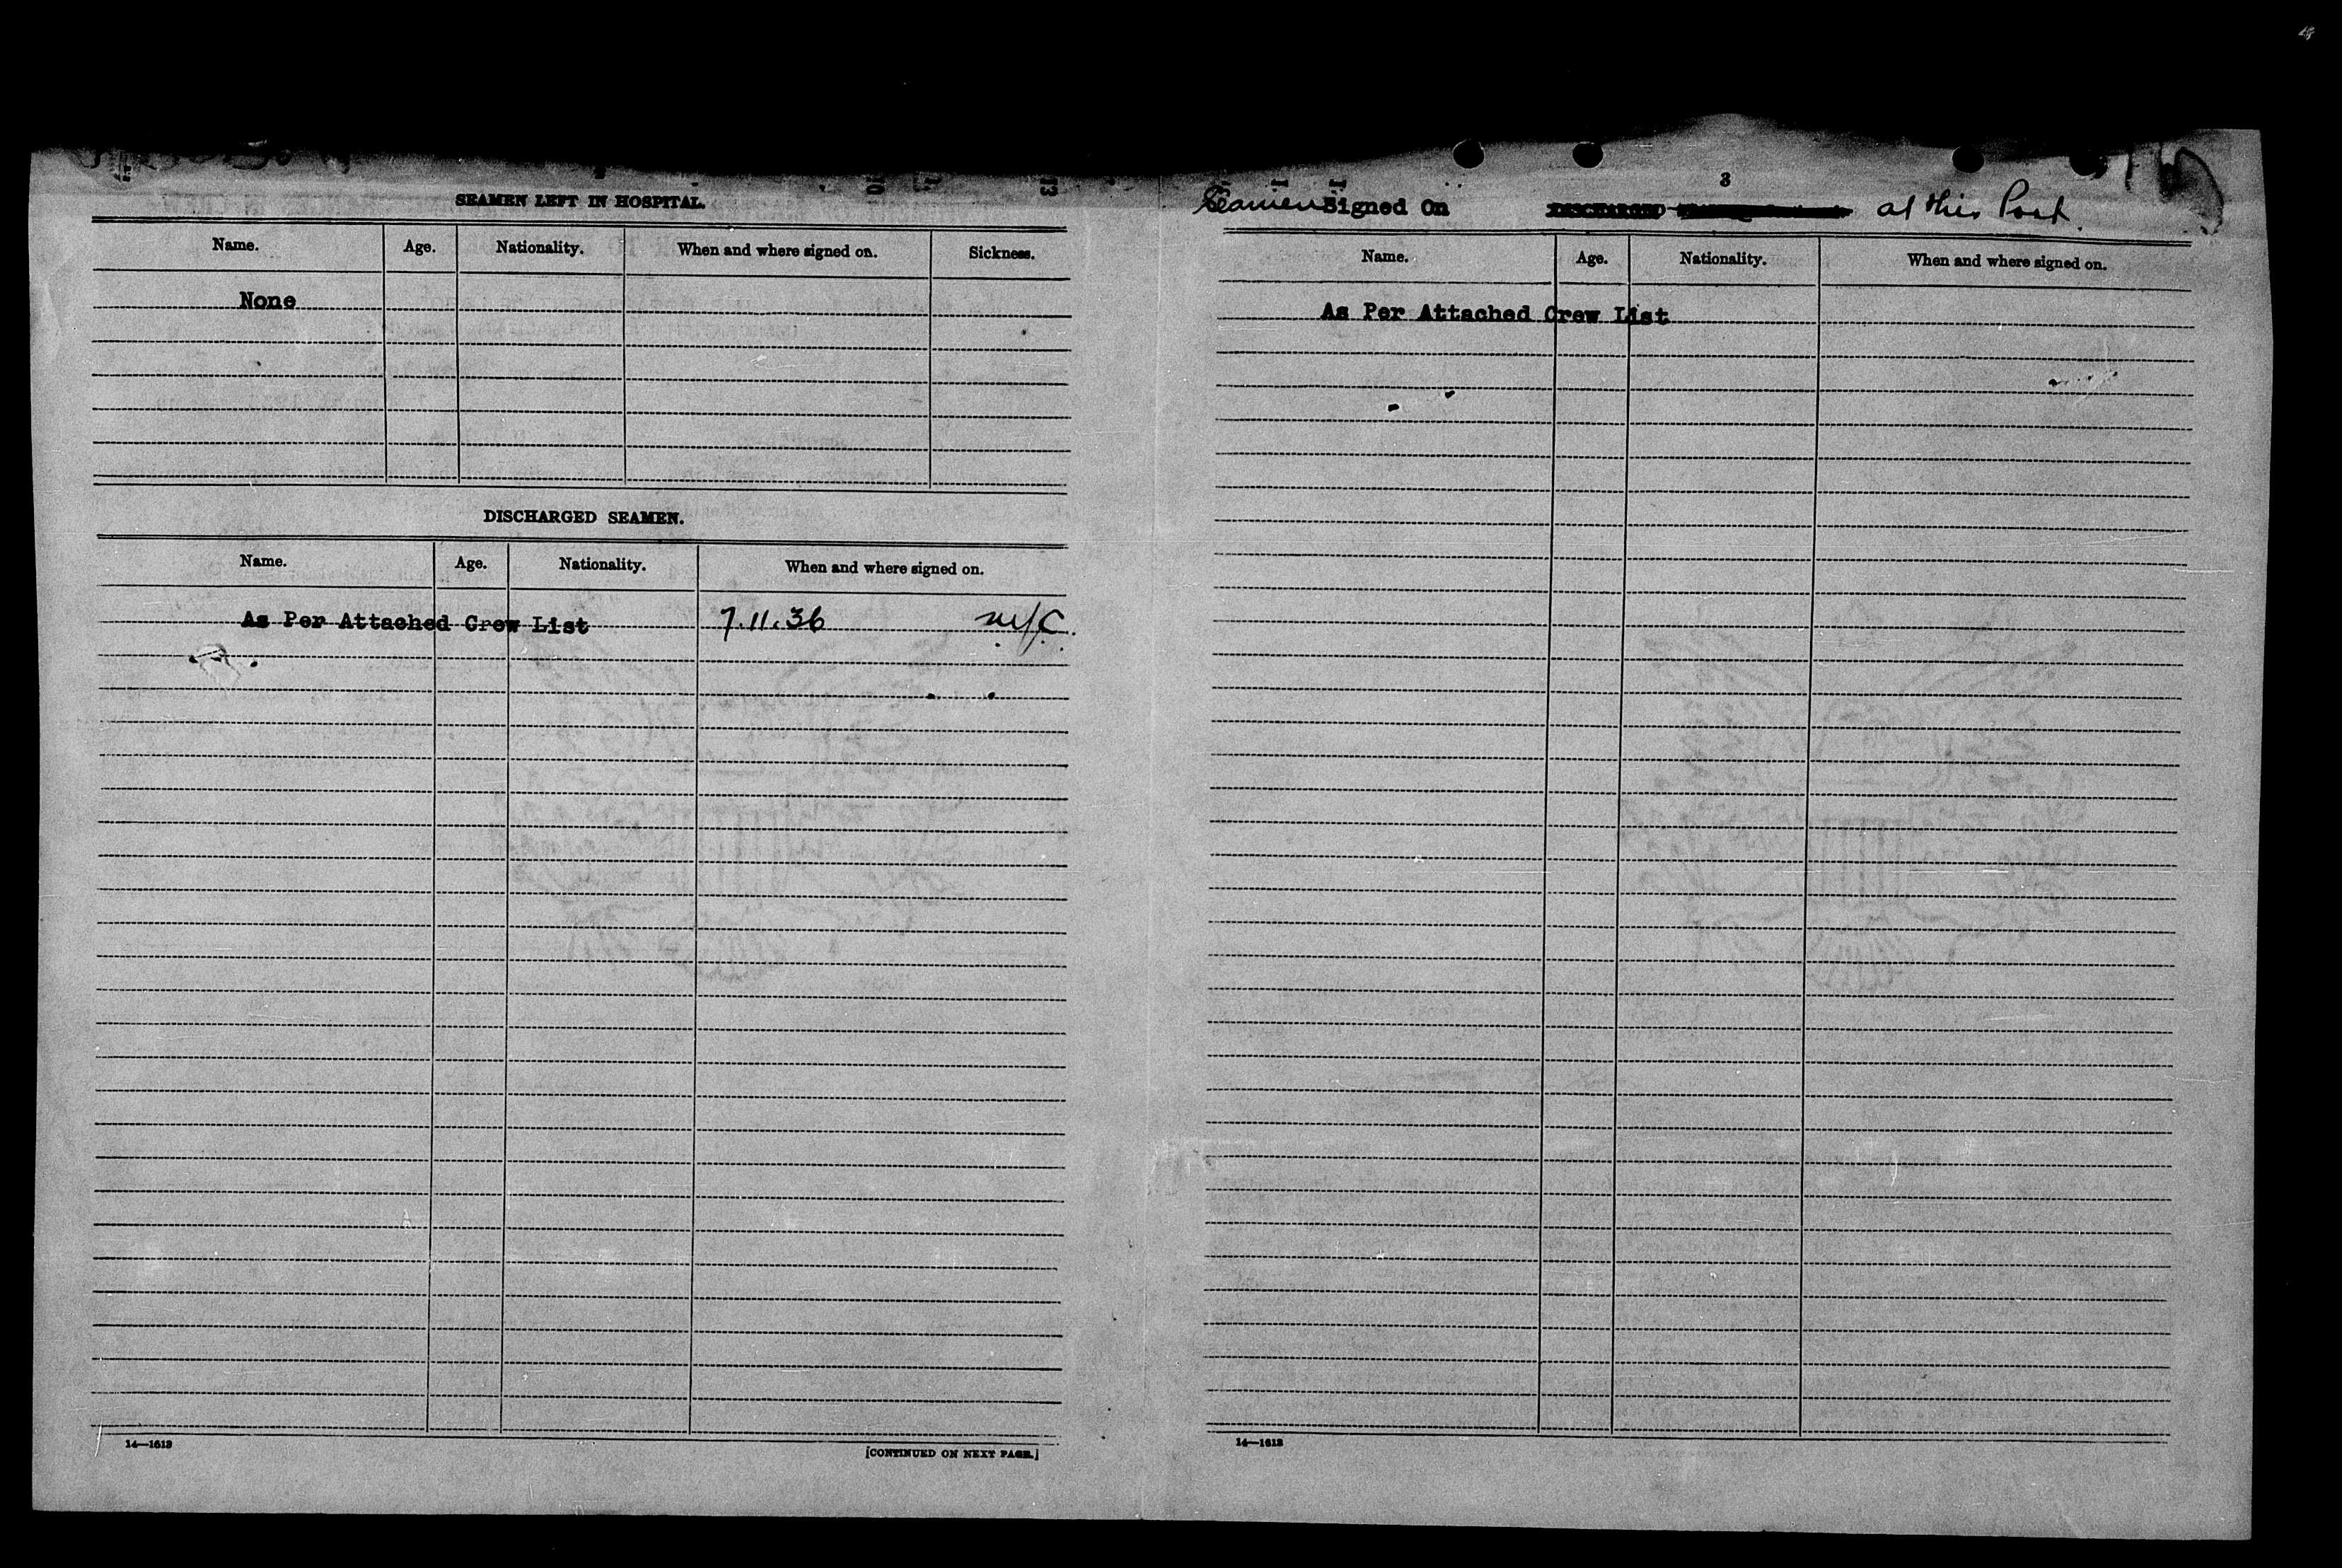 SEAMEN LEFT IN HOSPITAL.
Name. Age. Nationality. When and where signed on. Sickness.
None
DISCHARGED SEAMEN.
Name. Age. Nationality. When and where signed on.
As Per Attached Crew List 7.11.36
14—1613
[CONTINUED ON NEXT PAGE.]
3
Seamen Signed On DISCHARGED at this Port.
Name. Age. Nationality. When and where signed on.
As Per Attached Crew List
14—1613